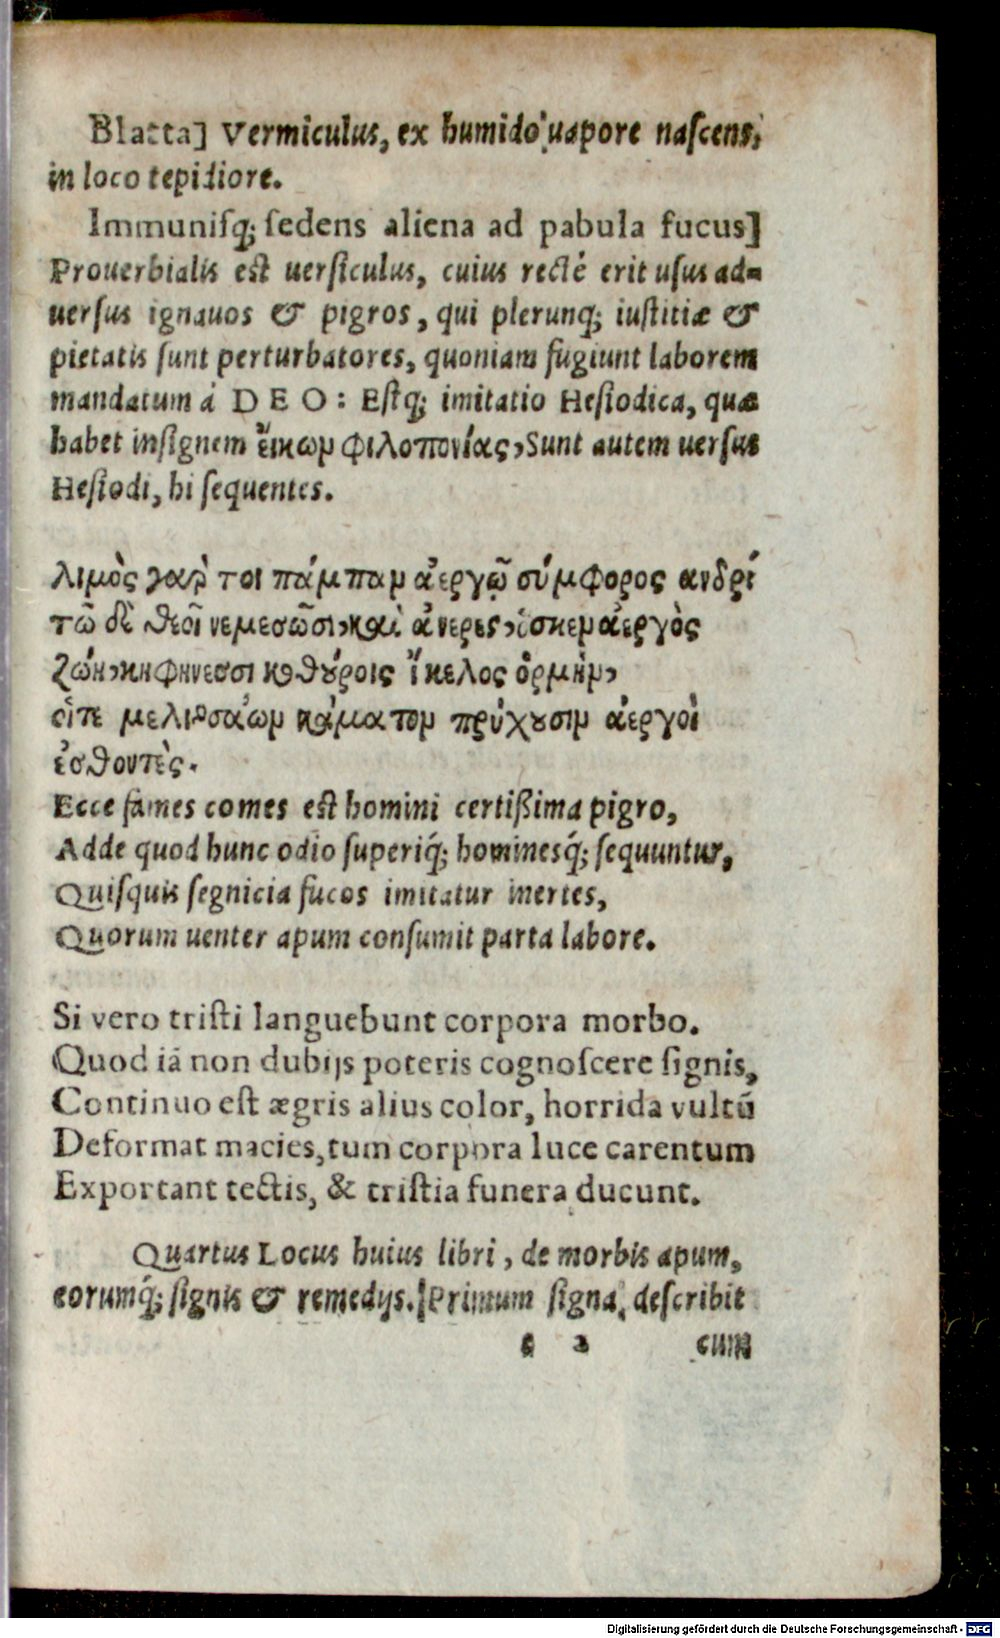 Blatta] Vermiculus, ex humido uapore naſcens,
in loco tepidiore.
Immuniſq; ſedens aliena ad pabula fucus]
Prouerbialis eſt uerſiculus, cuius rectè erit uſus ad-
uerſus ignauos & pigros, qui plerunq; iuſtitiæ &
pietatis ſunt perturbatores, quoniam fugiunt laborem
mandatum à DEO: Eſtq; imitatio Heſiodica, quæ
habet inſignem ἔικωμ φιλοπονίας, Sunt autem uerſus
Heſiodi, hi ſequentes.
λιμὸς γαρ̀ τοι πάμπαμ ἀεργῷ σύμφορος ανδρί
τῶ δὲ θεοῖ νεμεσῶσι, καὶ ἀνερες, ὁς κεμ ἀεργὸς
ζώη, κηφήνεσσι κοθούροις ἴκελος ὁρμὴμ,
οἵτε μελισσάωμ κάματομ τρύχουσιμ ἀεργοὶ
ἐσθοντὲς.
Ecce fames comes eſt homini certißima pigro,
Adde quod hunc odio ſuperiq́; hominesq́; ſequuntur,
Quiſquis ſegnicia fucos imitatur inertes,
Quorum uenter apum conſumit parta labore.
Si vero triſti languebunt corpora morbo.
Quod iã non dubijs poteris cognoſcere ſignis,
Continuo eſt ægris alius color, horrida vultũ
Deformat macies, tum corpora luce carentum
Exportant tectis, & triſtia funera ducunt.
Quartus Locus huius libri, de morbis apum,
eorumq́; ſignis & remedijs. Primum ſigna, deſcribit
cum
Digitalisierung gefördert durch die Deutsche Forschungsgemeinschaft - DFG